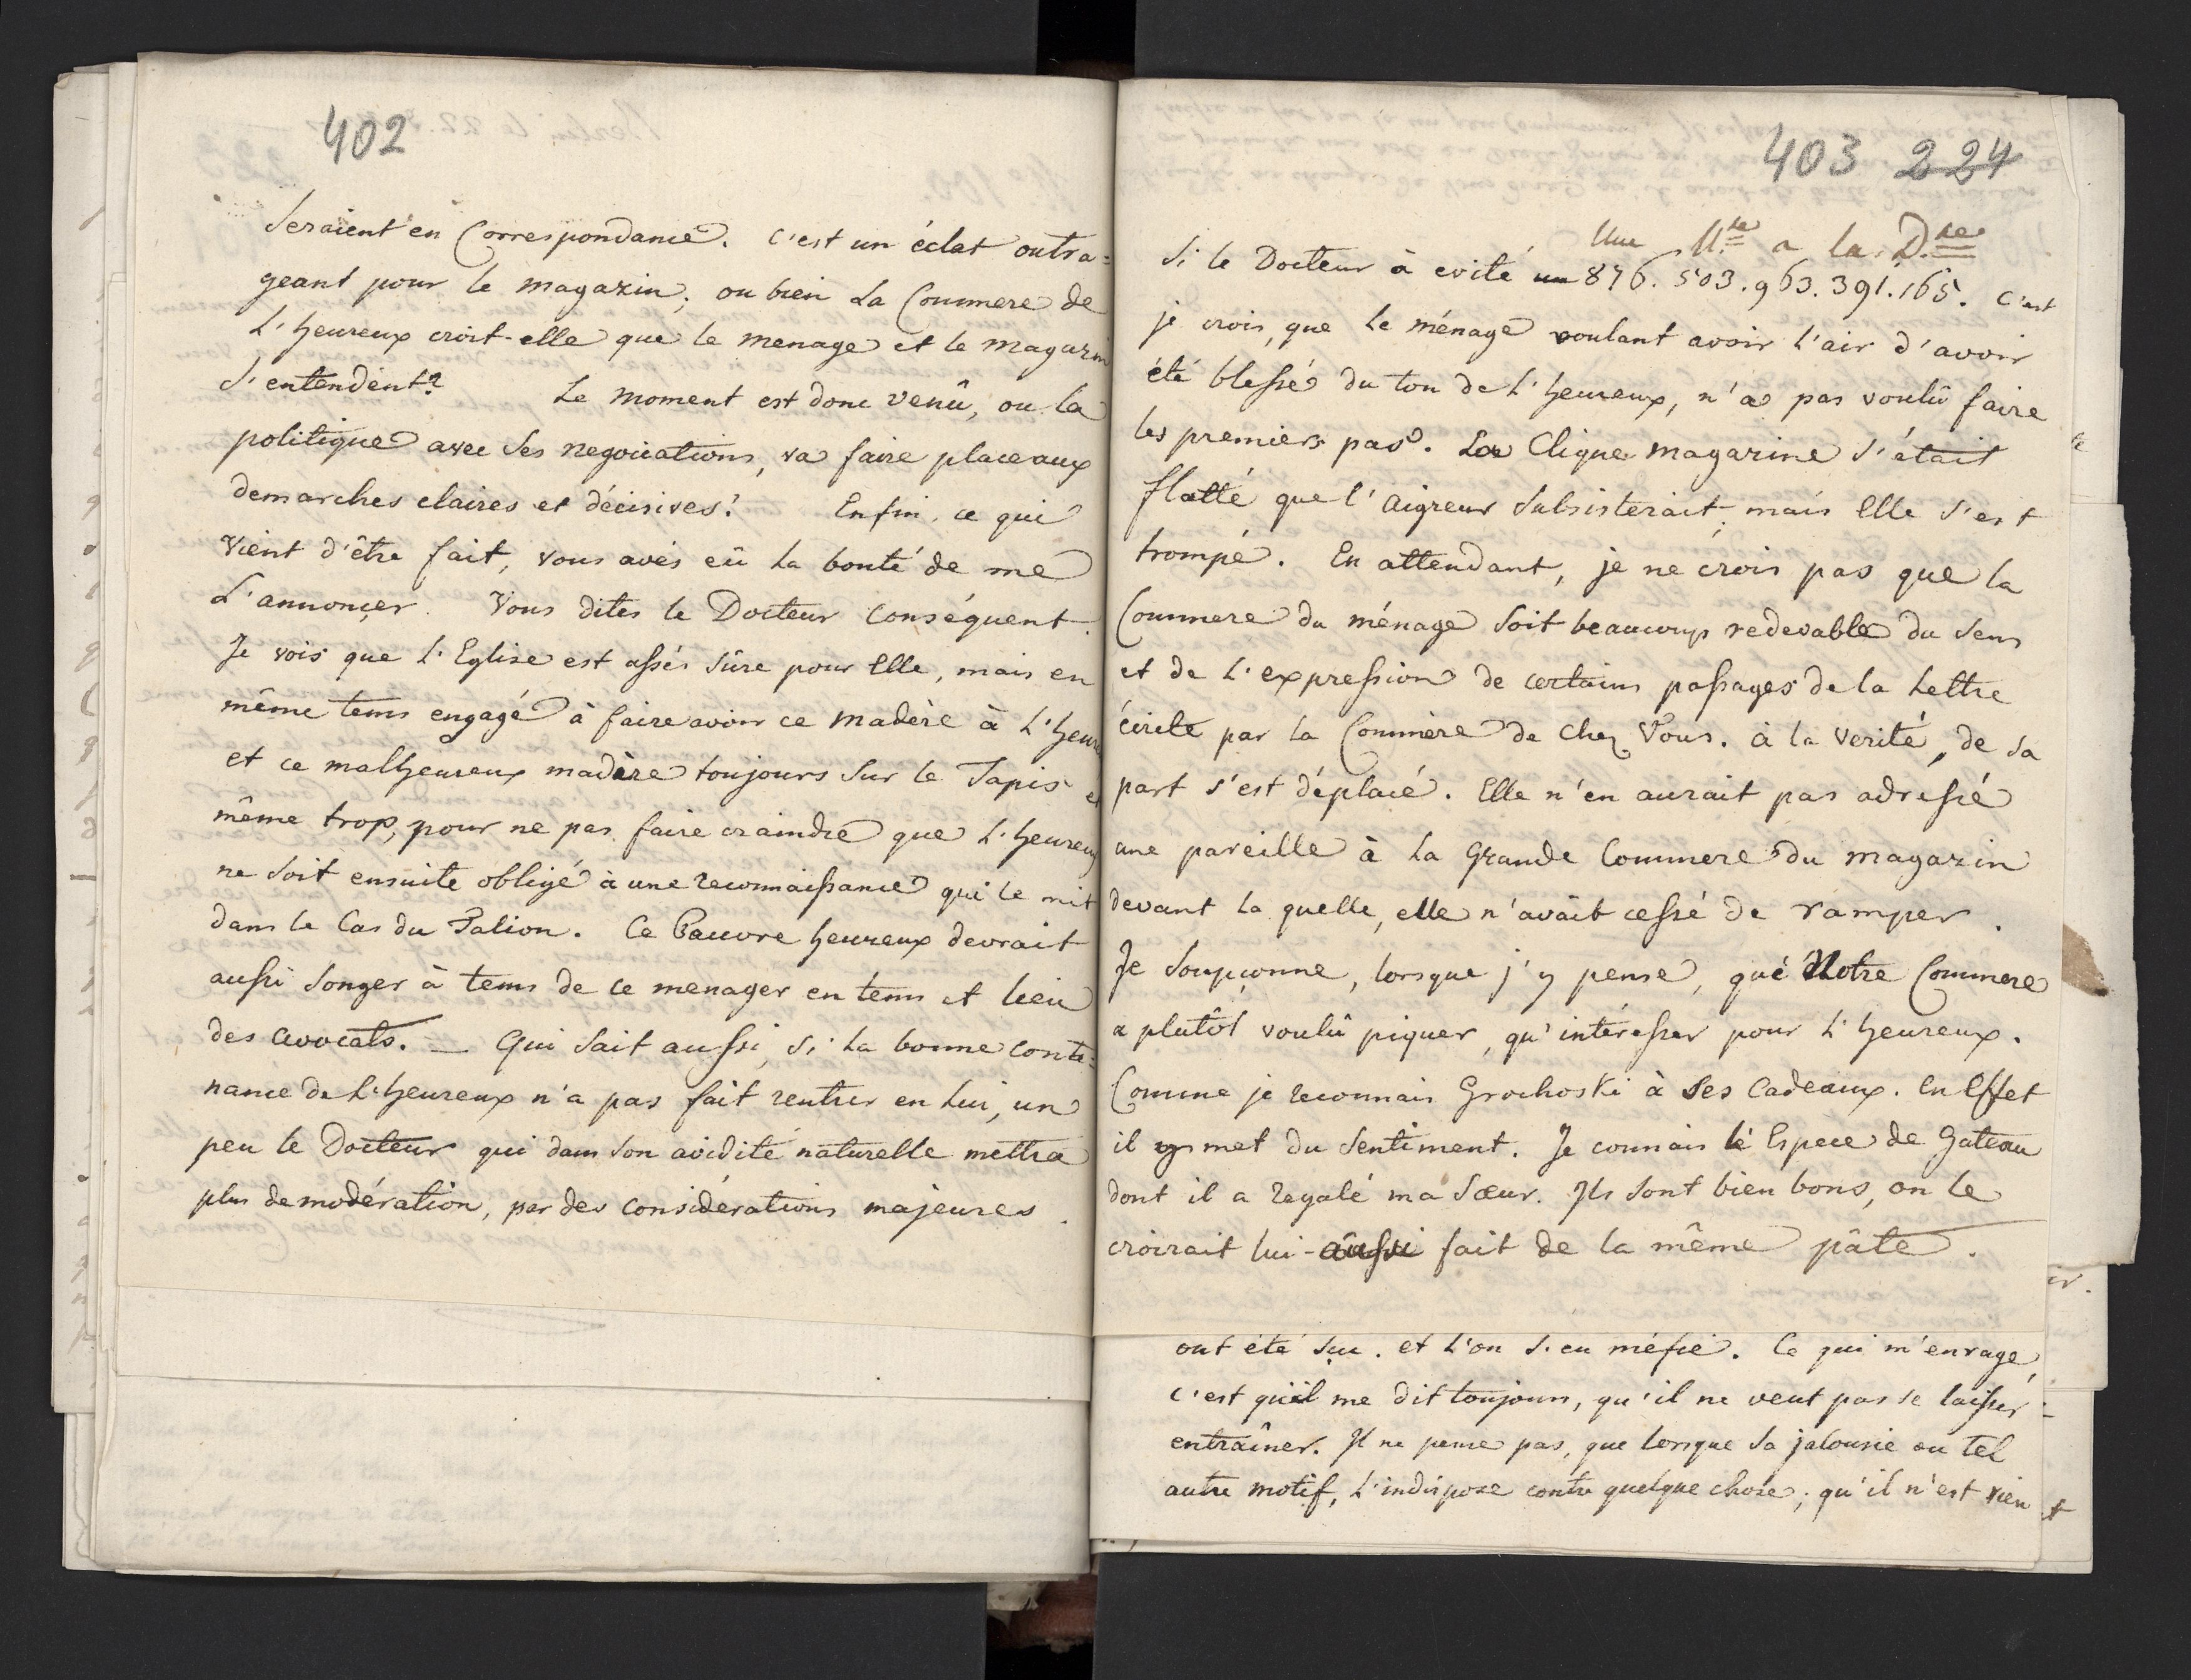 402
Seraient en Correspondance. C'est un éclat outra=
geant pour le magazin; ou bien La Commere de
L'heureux croit-elle que le menage et le magazin
S'entendent? Le moment est donc venû, ou la
politique avec Ses negociations, va faire place aux
demarches claires et décisives! Enfin, ce qui
vient d'être fait, vous avés eû la bonté de me
L'annonçer. Vous dites le Docteur conséquent.
Je vois que L'Eglise est assés sûre pour Elle, mais en
même tems engagé à faire avoir ce madère à L'heur
et ce malheureux madère toujours Sur le Tapis et
même trop, pour ne pas faire craindre que L'heureux
ne Soit ensuite obligé à une reconnaissance qui le mit
dans le Cas du Palion. Ce Pauvre heureux devrait
aussi Songer à tems de ce menager en tems et lieu
des avocats. — Qui Sait aussi, Si La bonne conte=
nance de L'heureux n'a pas fait rentrer en Lui, un
peu le Docteur qui dans Son avidité naturelle mettra
plus de modération, par des considérations majeures.
403 224
Une à la D.
Si le Docteur à evité un 876. 503. 963. 391. 165. C'est
je crois, que le ménage voulant avoir l'air d'avoir
été blessé du ton de L'heureux, n'a pas voulû faire
les premiers pas. La Clique magazine S'était
flatté que l'Aigreur Subsisterait; mais Elle S'est
trompé. En attendant, je ne crois pas que la
Commere du ménage Soit beaucoup redevable du Sens
et de L'expression de certains passages de la Lettre
écrite par la Commère de Chez Vous. à la Verité, de Sa
part s'est déplacé. Elle n'en aurait pas adressé
une pareille à La Grande Commere du magazin
devant La quelle, elle n'avait cessé de ramper.
Je Soupçonne, lorsque j'y pense, que Notre Commere
a plutôt voulû piquer, qu'intéresser pour L'heureux.
Comme je reconnais Grochoski à Ses Cadeaux. En Effet
il y met du Sentiment. Je connais lé Espece de Gateau
dont il a regalé ma Sœur. Ils Sont bien bons, on le
croirait lui-aussi fait de la même pâte.
ont été Su. et L'on S'en méfie. Ce qui m'enrage,
C'est qu'il me dit toujours, qu'il ne veut pas se laisser
entraîner. Il ne pense pas, que lorsque Sa jalousie ou tel
autre motif, L'indispose contre quelque chose; qu'il n'est rien